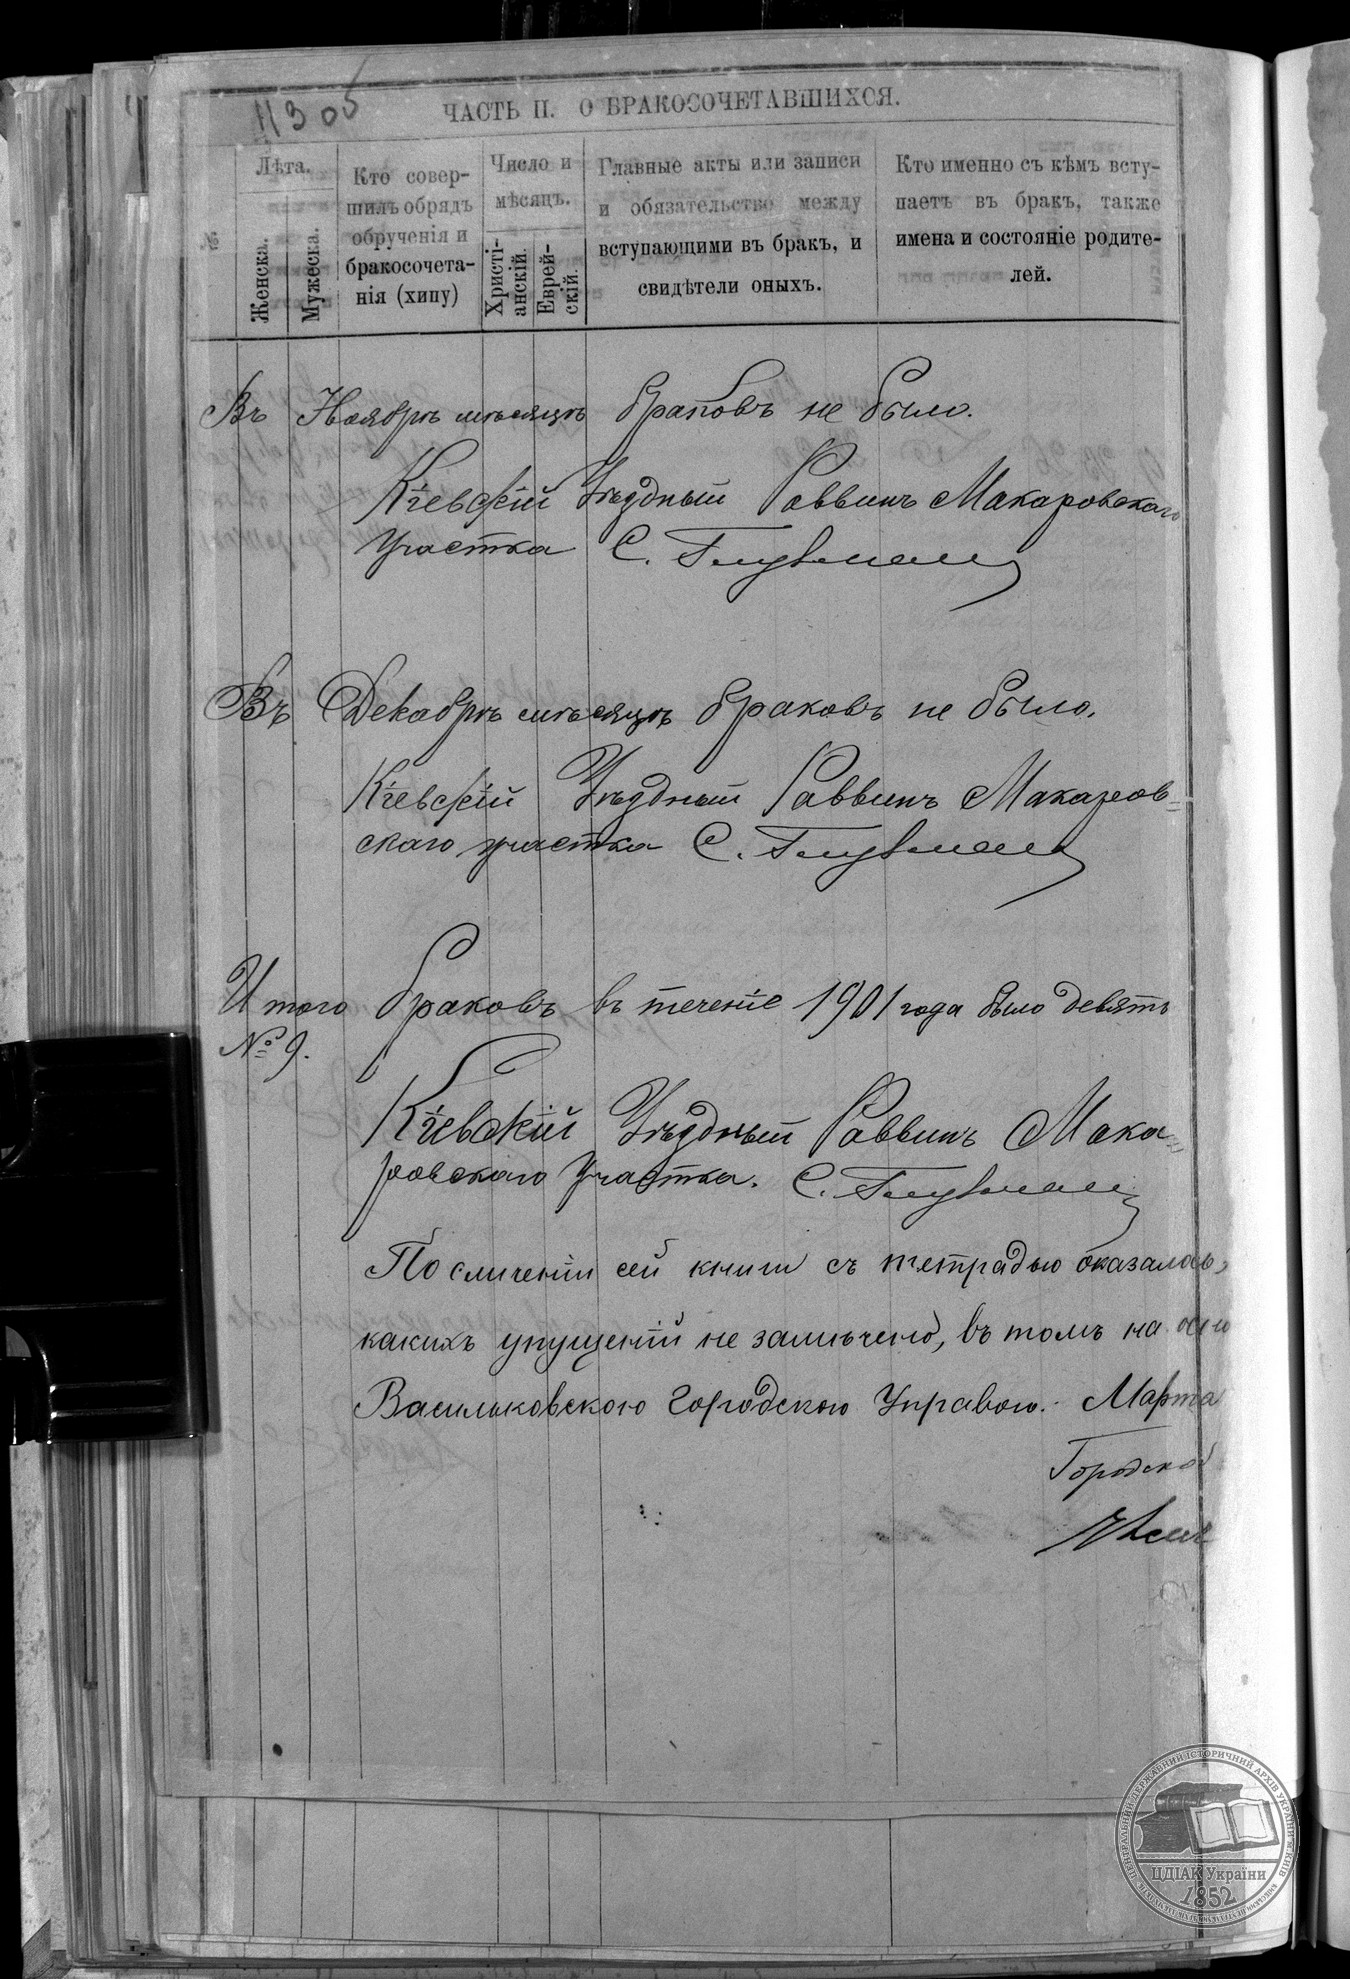 11305
ЧАСТЬ II. О БРАКОСОЧЕТАВШИХСЯ.
№
Лѣта.
Женска.
Мужеска.
Кто совер-
шилъ обрядъ
обрученія и
бракосочета-
нія (хипу)
Число и
мѣсяцъ.
Христі-
анскій.
Еврей-
скій.
Главные акты или записи
и обязательство между
вступающими въ бракъ, и
свидѣтели оныхъ.
Кто именно съ кѣмъ всту-
паетъ въ бракъ, также
имена и состояніе родите-
лей.
Въ Ноябрѣ мѣсяцѣ браковъ не было.
Кіевскій Уѣздный Раввинъ Макаровскаго
Участка С.
Въ Декабрѣ мѣсяцѣ браковъ не было.
Кіевскій Уѣздный Раввинъ Макаров=
скаго участка С.
Итого браковъ въ теченіе 1901 года было девять
№ 9.
Кіевскій Уѣздный Раввинъ Мака=
ровскаго Участка. С.
По сличеніи сей книги съ тетрадью оказалось,
какихъ упущеній не замѣчено, въ томъ
Васильковскою Городскою Управою. Марта
Городской
ЦЕНТРАЛЬНИЙ ДЕРЖАВНИЙ ІСТОРИЧНИЙ АРХІВ УКРАЇНИ, М. КИЇВ
ЦДІАК України
1852